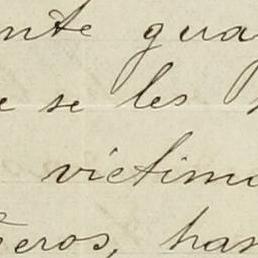 nte gua
e se les
victima
ñeros, han